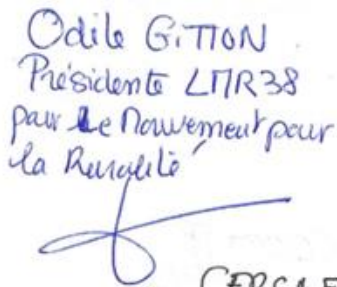 Odile GiTTON
Présidente LMR38
pour Le Mouvement pour
la Ruralité